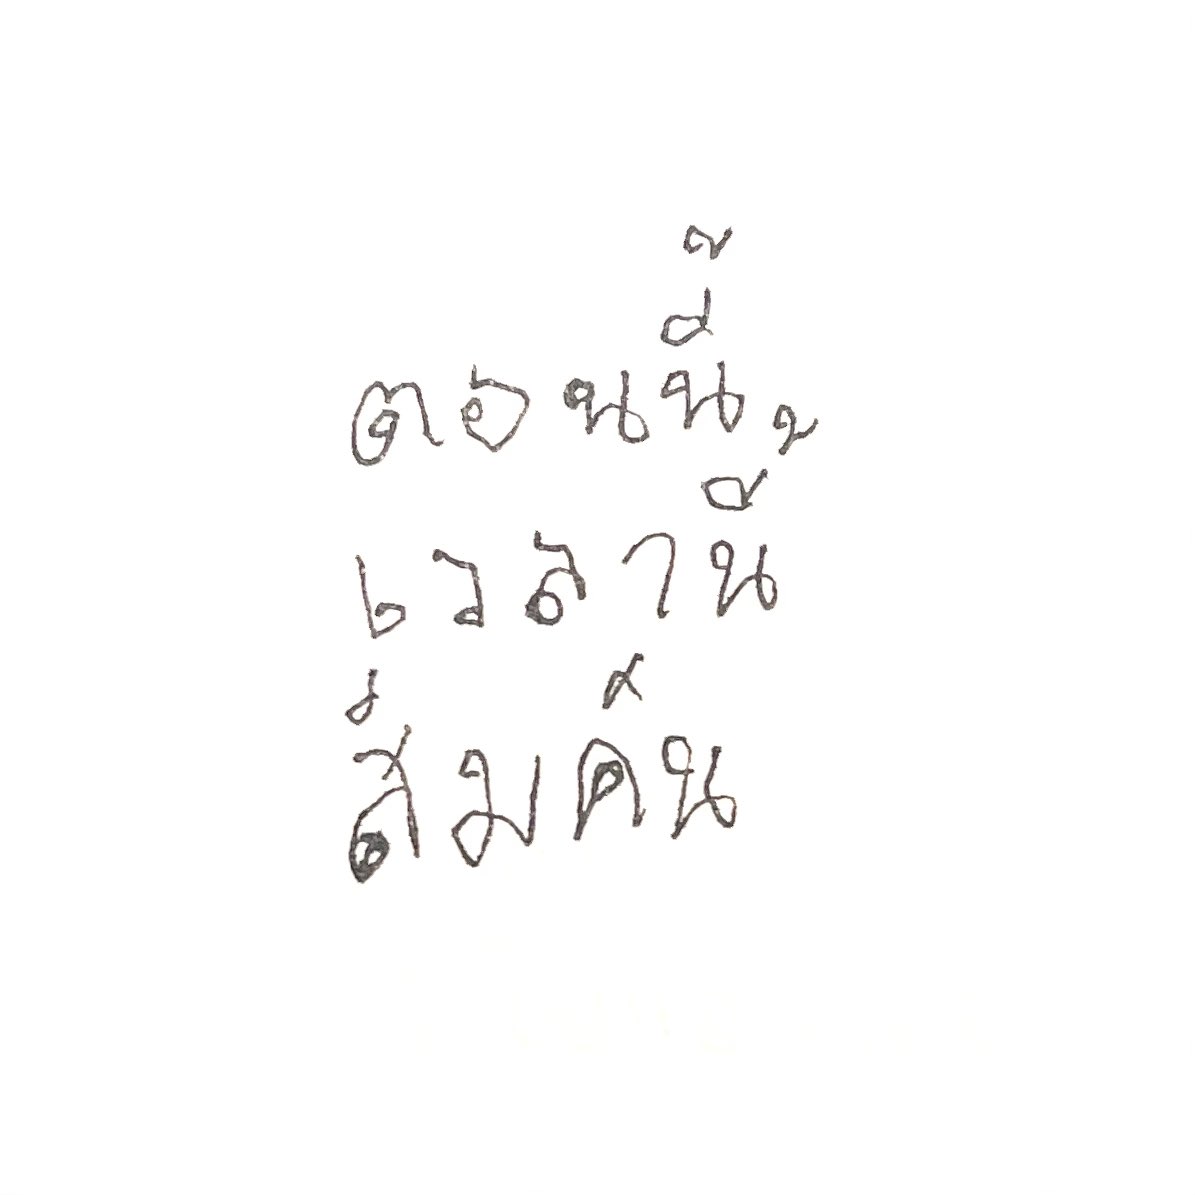 ตอนนี้
เวลานี้
ส้มคัน